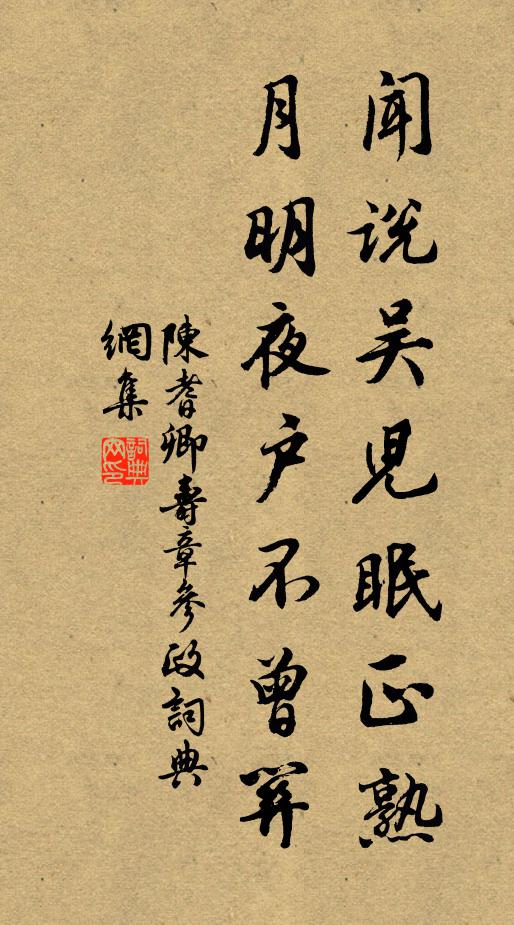 闻说吴児眠正熟
月明夜户不曾關
陳耆卿壽章參政詞典
網集
詞典网印